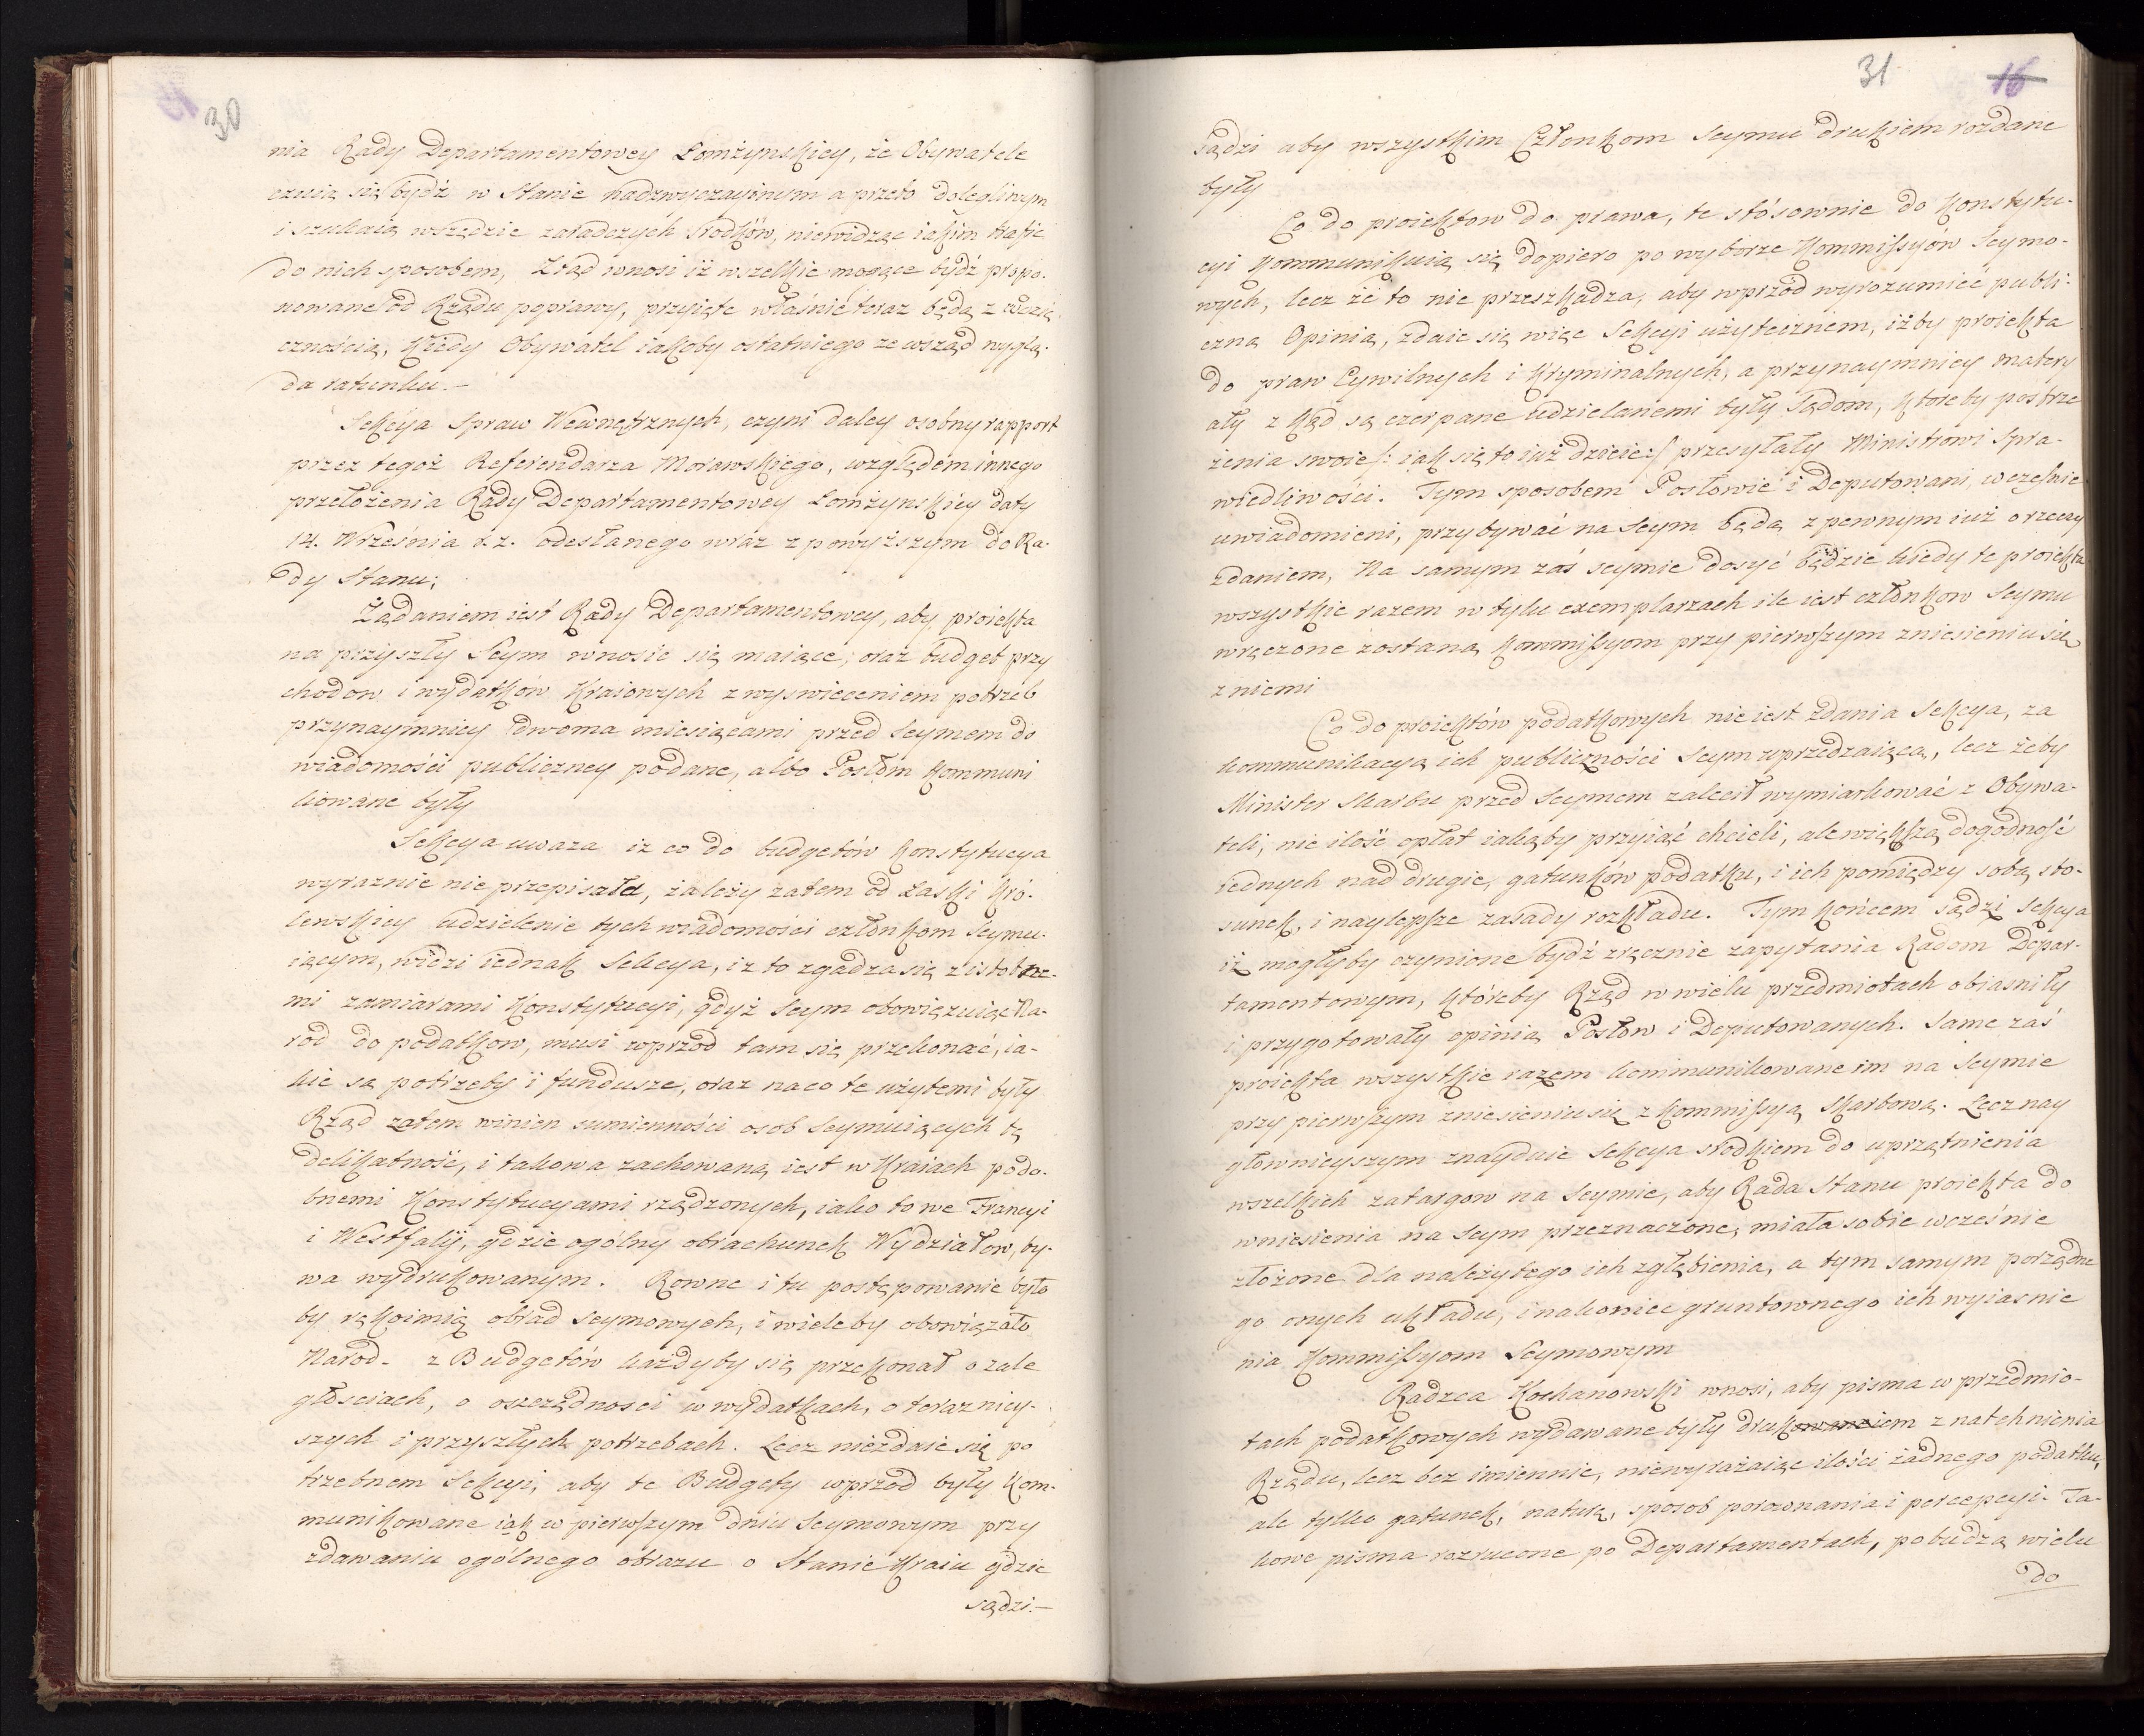 30
nia Rady Departamentowey Łomżynskiey, że Obywatele
czuią się bydź w Stanie nadzwyczaynym a przeto dolegliwym
i szukaią wszędzie zaradczych srodków, niewidząc iakim trafić
do nich sposobem, Ztąd wnosi iż wszelkie mogące bydź propo-
nowane od Rządu poprawy, przyięte właśnie teraz będą z wdzię
cznością, kiedy Obywatel iakoby ostatniego ze wsząd wyglą-
da ratunku.—
Sekcya Spraw Wewnętrznych, czyni daley osobny rapport
przez tegoż Referendarza Morawskiego, względem innego
przełożenia Rady Departamentowey Łomżynskiey daty
14. Września r. z. odesłanego wraz z powyższym do Ra-
dy Stanu;
Żądaniem iest Rady Departamentowey, aby proiekta
na przyszły Seym wnosic się maiące, oraz budget przy
chodow i wydatków Kraiowych z wyswieceniem potrzeb
przynaymniey dwoma miesiącami przed Seymem do
wiadomości publiczney podane, albo Posłom kommuni
kowane były
Sekcya uwaza iz co do budgetów Konstytucya
wyraznie nie przepisała, zależy zatem od Łaski Kró-
lewskiey udzielenie tych wiadomości członkom Seymu-
iącym, widzi iednak Sekcya, iz to zgadza się z istotne-
mi zamiarami Konstytucyi, gdyż Seym obowiązuiąc Na-
rod do podatkow, musi wprzod tam się przekonać, ia-
kie są potrzeby i fundusze, oraz na co te użytemi były
Rząd zatem winien sumienności osob Seymuiących tę
delikatność, i takowa zachowaną iest w Kraiach podo-
bnemi Konstytucyami rządzonych, iako to we Francyi
i Westfalij, gdzie ogólny obrachunek Wydziałow, by-
wa wydrukowanym. Rowne i tu postępowanie było
by rękoimią obrad Seymowych, i wiele by obowiązało
Narod. z Budgetów każdyby się przekonał o zale
głosciach, o oszczędnosci w wydatkach, o terazniey-
szych i przyszłych potrzebach. Lecz niezdaie się po
trzebnem Sekcyi, aby te Budgety wprzod były kom-
munikowane iak w pierwszym dniu Seymowym przy
zdawaniu ogólnego obrazu o Stanie Kraiu gdzie
sądzi.—
31
16
sądzi aby wszystkim Członkom Seymu drukiem rozdane
były
Co do proiektow do prawa, te stósownie do Konstytu-
cyi kommunikuią się dopiero po wyborze Kommissyów Seymo-
wych, lecz że to nie przeszkadza, aby wprzod wyrozumieć publi-
czną Opinią, zdaie się więc Sekcyi użytecznem, iżby proiekta
do praw Cywilnych i Kryminalnych, a przynaymniey matery
ały z kąd są czerpane udzielanemi były Sądom, ktoreby postrze
żenia swoie /: iak się to iuż dzieie :/ przesyłały Ministrowi Spra-
wiedliwości. Tym sposobem Posłowie i Deputowani, wczesnie
uwiadomieni, przybywać na Seym będą z pewnym iuż o rzeczy
zdaniem, Na samym zaś seymie dosyć będzie kiedy te proiekta
wszystkie razem w tylu exemplarzach ile iest członkow Seymu
wręczone zostaną Kommissyom przy pierwszym zniesieniu się
z niemi
Co do proiektów podatkowych nie iest zdania Sekcya, za
kommunikacyą ich publiczności Seym uprzedzaiącą, lecz żeby
Minister Skarbu przed Seymem zalecił wymiarkować z Obywa-
teli, nie ilość opłat iakąby przyiąć chcieli, ale większą dogodność
iednych nad drugie, gatunków podatku, i ich pomiędzy sobą sto-
sunek, i naylepsze zasady rozkładu. Tym końcem sądzi Sekcya
iż mogłyby czynione bydź zręcznie zapytania Radom Depar-
tamentowym, któreby Rząd w wielu przedmiotach obiasniły
i przygotowały opinią Posłow i Deputowanych. Same zaś
proiekta wszystkie razem kommunikowane im na Seymie
przy pierwszym zniesieniu się z Kommissyą Skarbową. Lecz nay
głownieyszym znayduie Sekcya srodkiem do uprzątnienia
wszelkich zatargow na Seymie, aby Rada Stanu proiekta do
wniesienia na Seym przeznaczone, miała sobie wcześnie
złożone dla należytego ich zgłębienia, a tym samym porządne
go onych układu, i nakoniec gruntownego ich wyiasnie
nia Kommissyom Seymowym
Radzca Kochanowski wnosi, aby pisma w przedmio-
tach podatkowych wydawane były drukiem z natchnienia
Rządu, lecz bez imiennie, niewyrażaiąc ilości żadnego podatku,
ale tylko gatunek, naturę, sposob porownania i percepcyi. Ta-
kowe pisma rozrzucone po Departamentach, pobudzą wielu
do